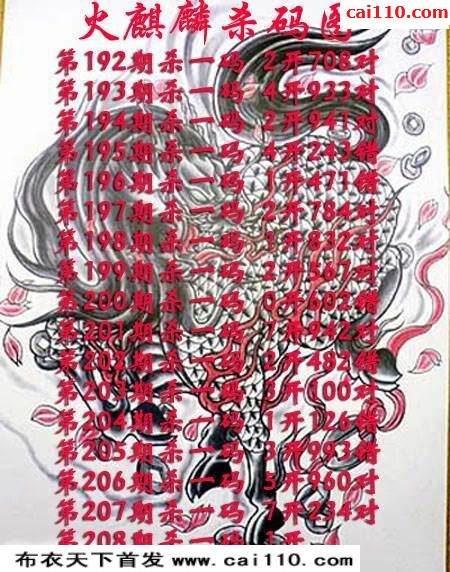 cai110.com
火麒麟杀码图
第192期杀一码 2开708对
第193期杀一码 4开933对
第194期杀一码 2开941对
第195期杀一码 4开243错
第196期杀一码 1开471错
第197期杀一码 2开784对
第198期杀一码 1开832对
第199期杀一码 2开567对
第200期杀一码 0开602错
第201期杀一码 7开942对
第202期杀一码 2开482错
第203期杀一码 3开100对
第204期杀一码 1开126错
第205期杀一码 3开993错
第206期杀一码 5开960对
第207期杀一码 7开234对
第208期杀一码 1开
布衣天下首发 www.cai110.com